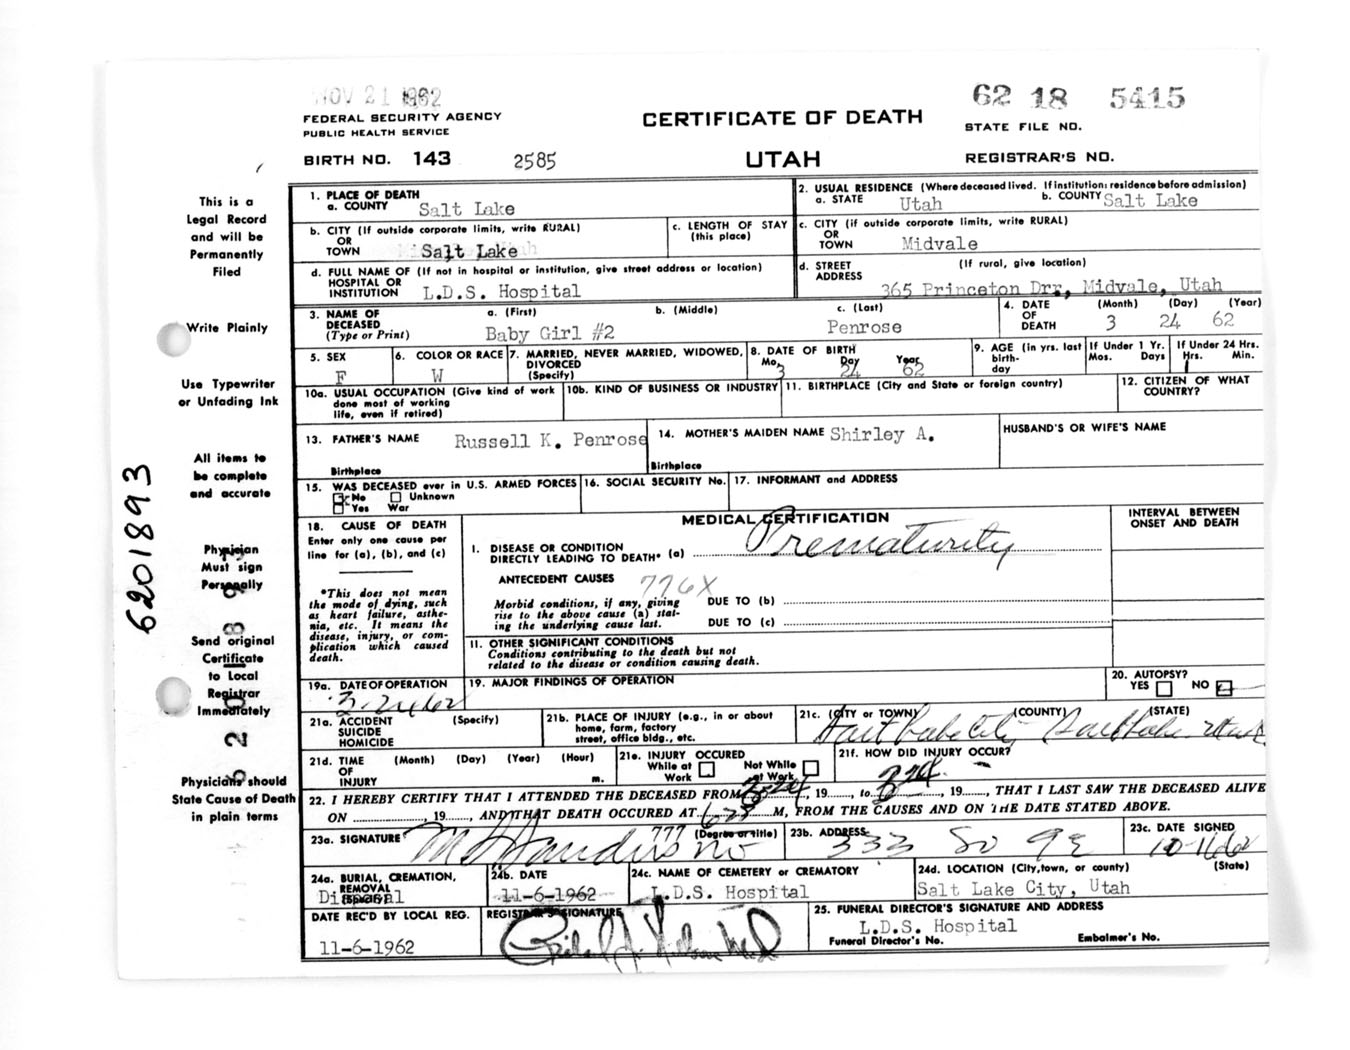 NOV 21 1962
62 18 5415
FEDERAL SECURITY AGENCY
PUBLIC HEALTH SERVICE
CERTIFICATE OF DEATH
STATE FILE NO.
BIRTH NO. 143 2585
UTAH
REGISTRAR'S NO.
This is a
Legal Record
and will be
Permanently
Filed
Write Plainly
Use Typewriter
or Unfading Ink
All items to
be complete
and accurate
Physician
Must sign
Personally
Send original
Certificate
to Local
Registrar
Immediately
Physicians should
State Cause of Death
in plain terms
6201893
1. PLACE OF DEATH
a. COUNTY Salt Lake
2. USUAL RESIDENCE (Where deceased lived. If institution: residence before admission)
a. STATE Utah b. COUNTY Salt Lake
b. CITY (If outside corporate limits, write RURAL)
OR
TOWN Salt Lake
c. LENGTH OF STAY
(this place)
c. CITY (If outside corporate limits, write RURAL)
OR
TOWN Midvale
d. FULL NAME OF (If not in hospital or institution, give street address or location)
HOSPITAL OR
INSTITUTION L.D.S. Hospital
d. STREET (If rural, give location)
ADDRESS
365 Princeton Drr, Midvale, Utah
3. NAME OF DECEASED
(Type or Print)
a. (First) b. (Middle) c. (Last)
Baby Girl #2 Penrose
4. DATE OF DEATH (Month) (Day) (Year)
3 24 62
5. SEX
F
6. COLOR OR RACE
W
7. MARRIED, NEVER MARRIED, WIDOWED,
DIVORCED
(Specify)
8. DATE OF BIRTH
Mo. Day Year
3 24 62
9. AGE (in yrs. last
birth-
day
If Under 1 Yr.
Mos. Days
If Under 24 Hrs.
Hrs. Min.
1
10a. USUAL OCCUPATION (Give kind of work
done most of working
life, even if retired)
10b. KIND OF BUSINESS OR INDUSTRY
11. BIRTHPLACE (City and State or foreign country)
12. CITIZEN OF WHAT
COUNTRY?
13. FATHER'S NAME Russell K. Penrose
Birthplace
14. MOTHER'S MAIDEN NAME Shirley A.
Birthplace
HUSBAND'S OR WIFE'S NAME
15. WAS DECEASED ever in U.S. ARMED FORCES
No Unknown
Yes War
16. SOCIAL SECURITY No.
17. INFORMANT and ADDRESS
18. CAUSE OF DEATH
Enter only one cause per
line for (a), (b), and (c)
*This does not mean
the mode of dying, such
as heart failure, asthe-
nia, etc. It means the
disease, injury, or com-
plication which caused
death.
MEDICAL CERTIFICATION
INTERVAL BETWEEN
ONSET AND DEATH
I. DISEASE OR CONDITION
DIRECTLY LEADING TO DEATH* (a) Prematurity
ANTECEDENT CAUSES 776X
Morbid conditions, if any, giving
rise to the above cause (a) stat-
ing the underlying cause last.
DUE TO (b)
DUE TO (c)
II. OTHER SIGNIFICANT CONDITIONS
Conditions contributing to the death but not
related to the disease or condition causing death.
19a. DATE OF OPERATION
3-24-62
19. MAJOR FINDINGS OF OPERATION
20. AUTOPSY?
YES NO
21a. ACCIDENT (Specify)
SUICIDE
HOMICIDE
21b. PLACE OF INJURY (e.g., in or about
home, farm, factory
street, office bldg., etc.
21c. (CITY or TOWN) (COUNTY) (STATE)
Salt Lake City Salt Lake Utah
21d. TIME (Month) (Day) (Year) (Hour)
OF
INJURY m.
21e. INJURY OCCURED
While at Work Not While at Work
21f. HOW DID INJURY OCCUR?
22. I HEREBY CERTIFY THAT I ATTENDED THE DECEASED FROM 3-24, 19......, to 3-24, 19......, THAT I LAST SAW THE DECEASED ALIVE
ON ............, 19......, AND THAT DEATH OCCURED AT ......M, FROM THE CAUSES AND ON THE DATE STATED ABOVE.
23a. SIGNATURE 777 (Degree or title)
23b. ADDRESS
333 So 9 E
23c. DATE SIGNED
10-16-62
24a. BURIAL, CREMATION,
REMOVAL
Disposal
24b. DATE
11-6-1962
24c. NAME OF CEMETERY or CREMATORY
L.D.S. Hospital
24d. LOCATION (City, town, or county) (State)
Salt Lake City, Utah
DATE REC'D BY LOCAL REG.
11-6-1962
REGISTRAR'S SIGNATURE
25. FUNERAL DIRECTOR'S SIGNATURE AND ADDRESS
L.D.S. Hospital
Funeral Director's No. Embalmer's No.